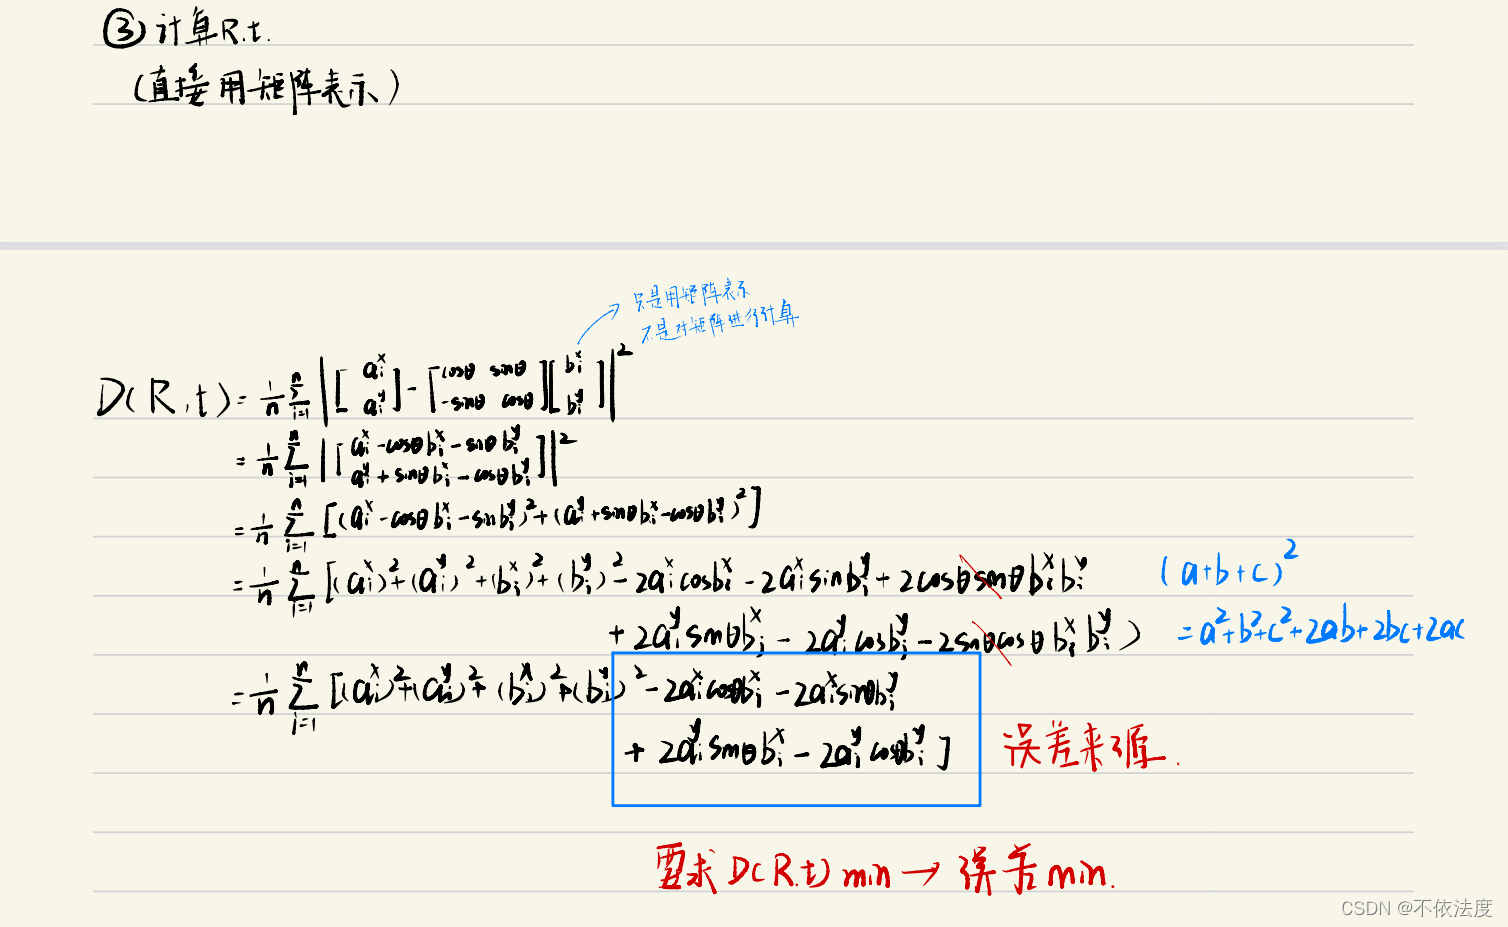 ③计算R.t.
(直接用矩阵表示)
只是用矩阵表示
不是对矩阵进行计算
D(R,t) = 1/n Σ_{i=1}^{n} |[a_i^x; a_i^y] - [cosθ sinθ; -sinθ cosθ][b_i^x; b_i^y]|²
= 1/n Σ_{i=1}^{n} |[a_i^x - cosθb_i^x - sinθb_i^y; a_i^y + sinθb_i^x - cosθb_i^y]|²
= 1/n Σ_{i=1}^{n} [(a_i^x - cosθb_i^x - sinb_i^y)² + (a_i^y + sinθb_i^x - cosθb_i^y)²]
= 1/n Σ_{i=1}^{n} [(a_i^x)² + (a_i^y)² + (b_i^x)² + (b_i^y)² - 2a_i^x cosb_i^x - 2a_i^x sinb_i^y + 2cosθsinθb_i^x b_i^y
+ 2a_i^y sinθb_i^x - 2a_i^y cosb_i^y - 2sinθcosθb_i^x b_i^y)
(a+b+c)²
= a²+b²+c²+2ab+2bc+2ac
= 1/n Σ_{i=1}^{n} [(a_i^x)² + (a_i^y)² + (b_i^x)² + (b_i^y)² - 2a_i^x cosθb_i^x - 2a_i^x sinθb_i^y
+ 2a_i^y sinθb_i^x - 2a_i^y cosθb_i^y]
误差来源.
要求D(R.t) min → 误差min.
CSDN @不依法度